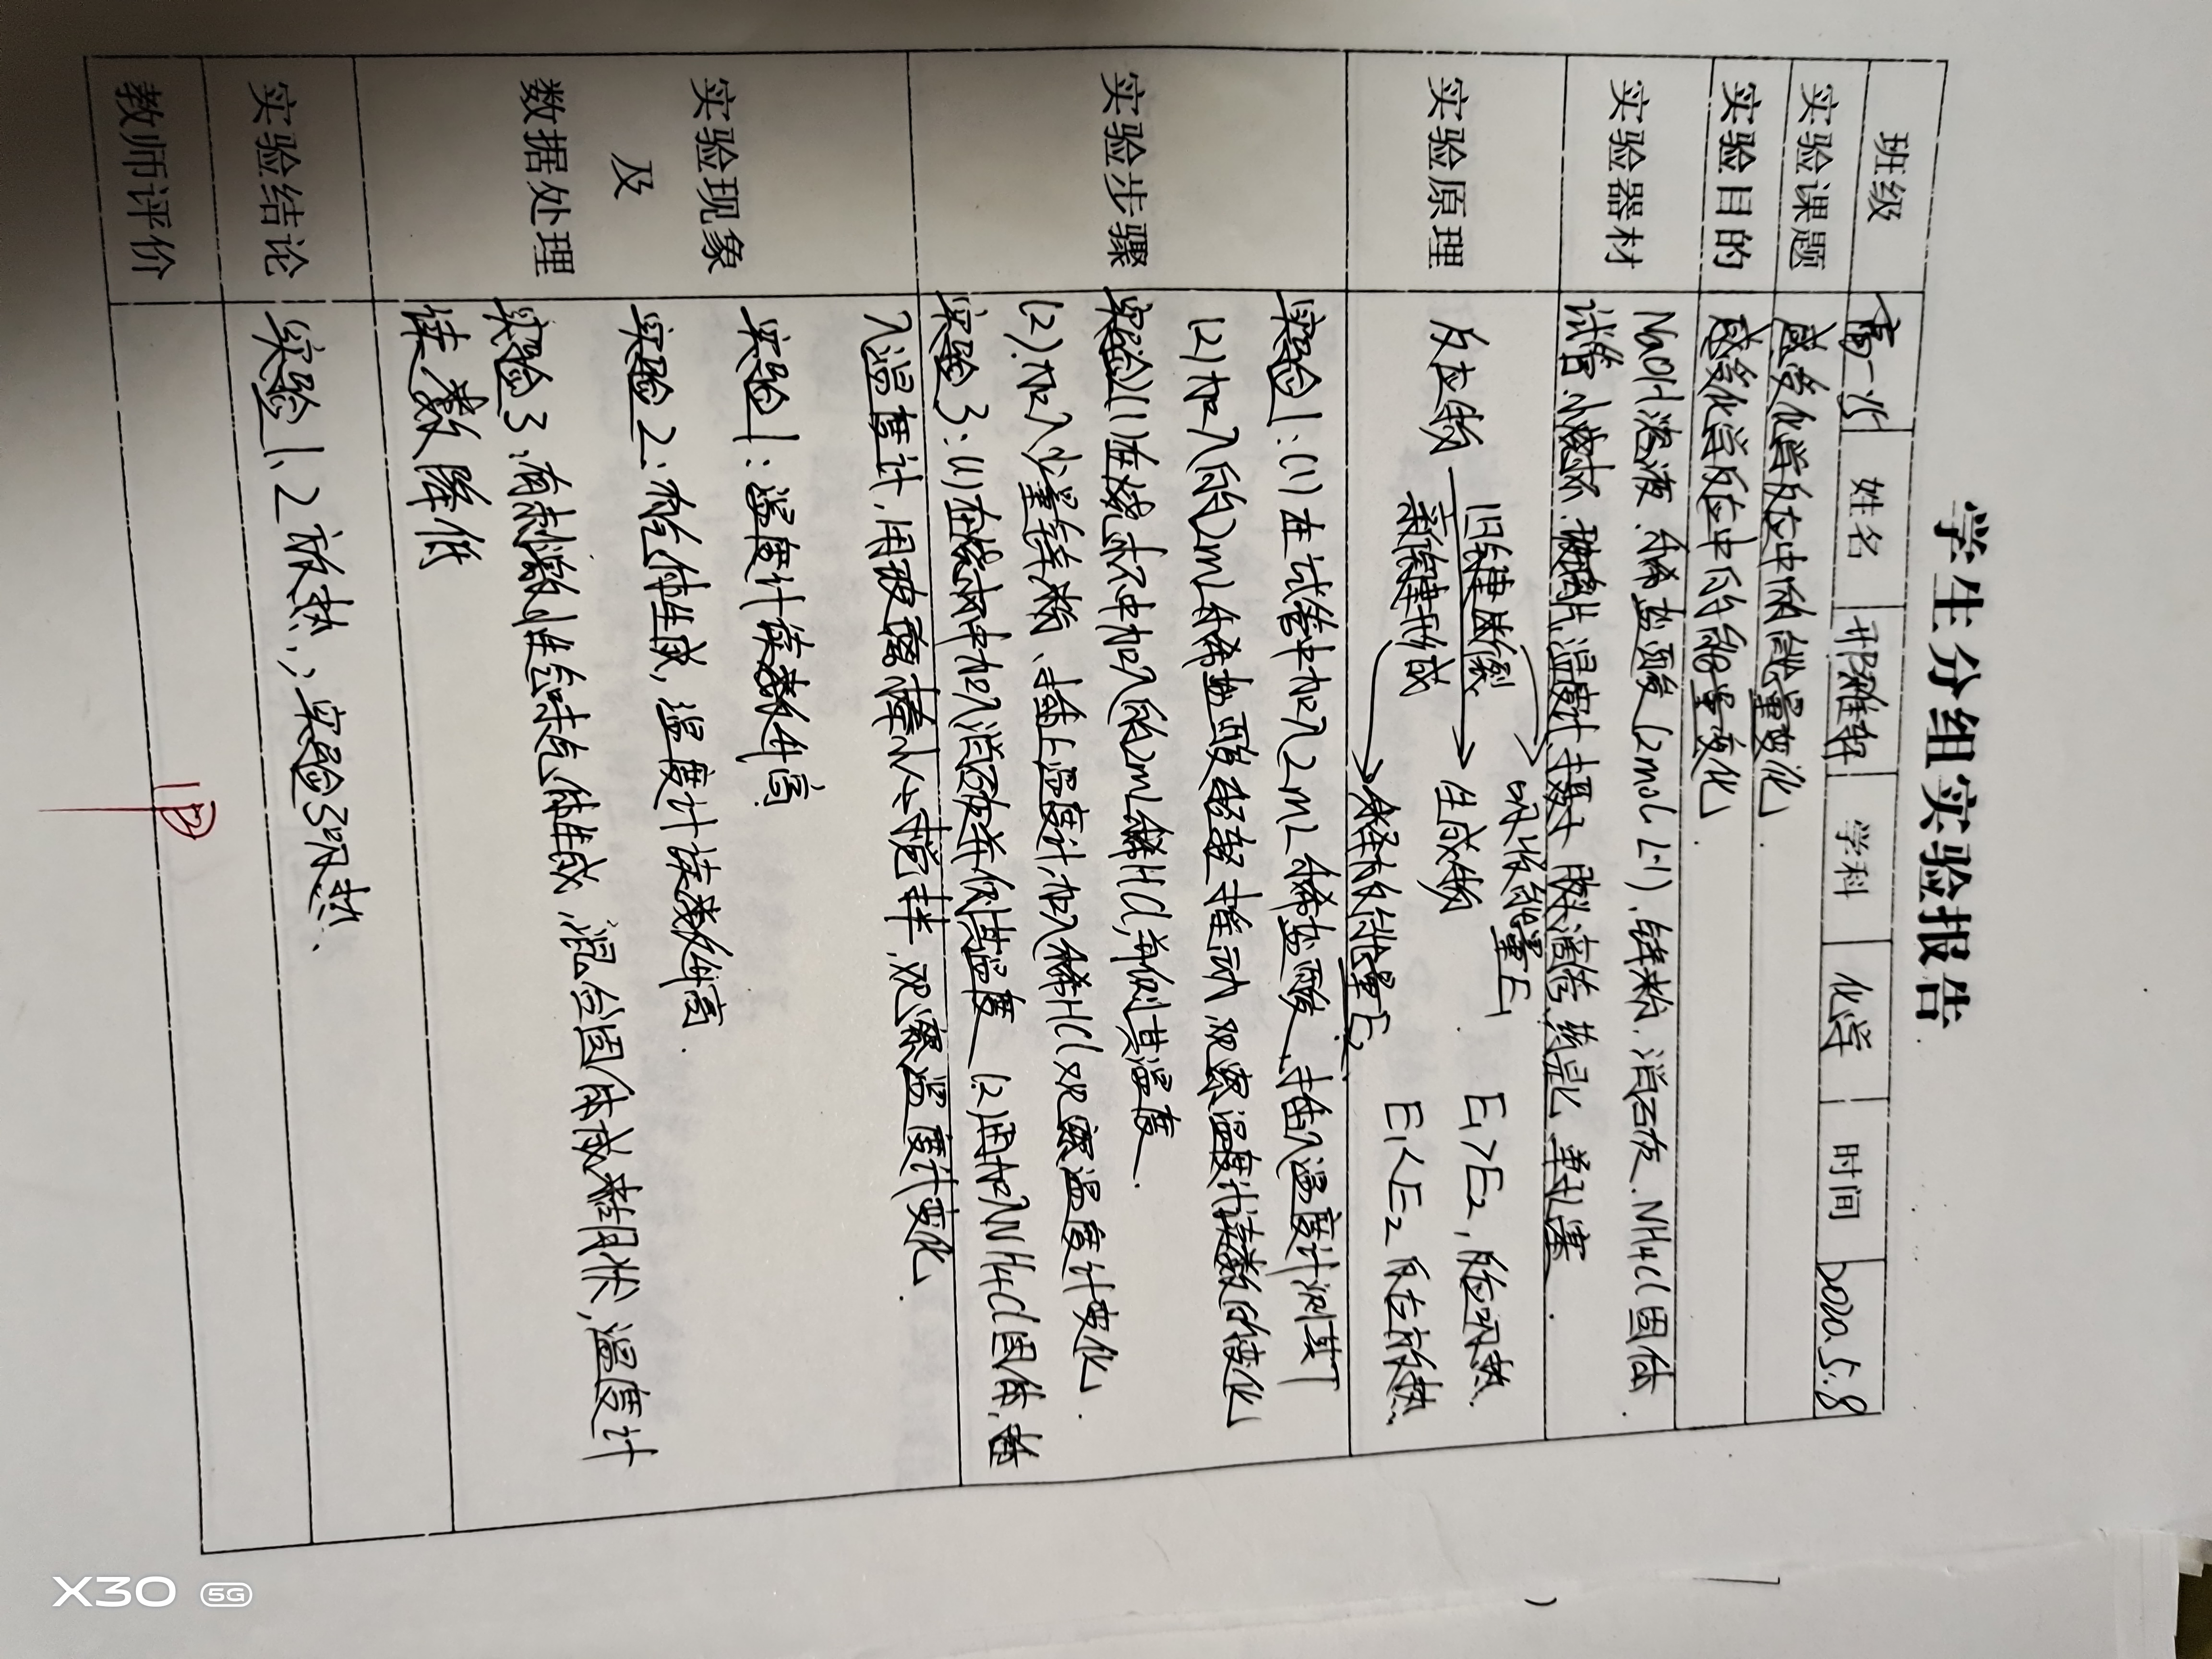 学生分组实验报告
班级 高一、15 姓名 邢雅轩 学科 化学 时间 2020.5.8
实验课题 感受化学反应中的能量变化.
实验目的 感受化学反应中的能量变化.
实验器材 NaOH溶液、稀盐酸(2mol·L-1)、锌粉、消石灰、NH4Cl固体.
试管、小烧杯、玻璃片、温度计、镊子、胶头滴管、药匙、单孔塞.
实验原理
旧键断裂 吸收能量E1
反应物 生成物
新键形成 释放能量E2
E1>E2,反应吸热.
E1<E2 反应放热.
实验步骤
实验1:(1)在试管中加入2mL稀盐酸、插入温度计测其T
(2)加入同2mL稀盐酸轻轻振动,观察温度计读数的变化
实验(1)在烧杯中加入同2mL稀HCl,并测其温度、
(2).加入少量锌粉、插上温度计,加入稀HCl观察温度计变化.
实验3:(1)在烧杯中加入消石灰并测其温度、(2)用加入NH4Cl固体、插
入温度计,用玻璃棒小搅拌,观察温度计变化.
实验现象
及
数据处理
实验1:温度计读数升高
实验2:有气体生成,温度计读数升高.
实验3:有刺激性气味气体生成,混合固体成糊状,温度计
读数降低
实验结论 实验1、2放热,;实验3吸热.
教师评价
X30 5G